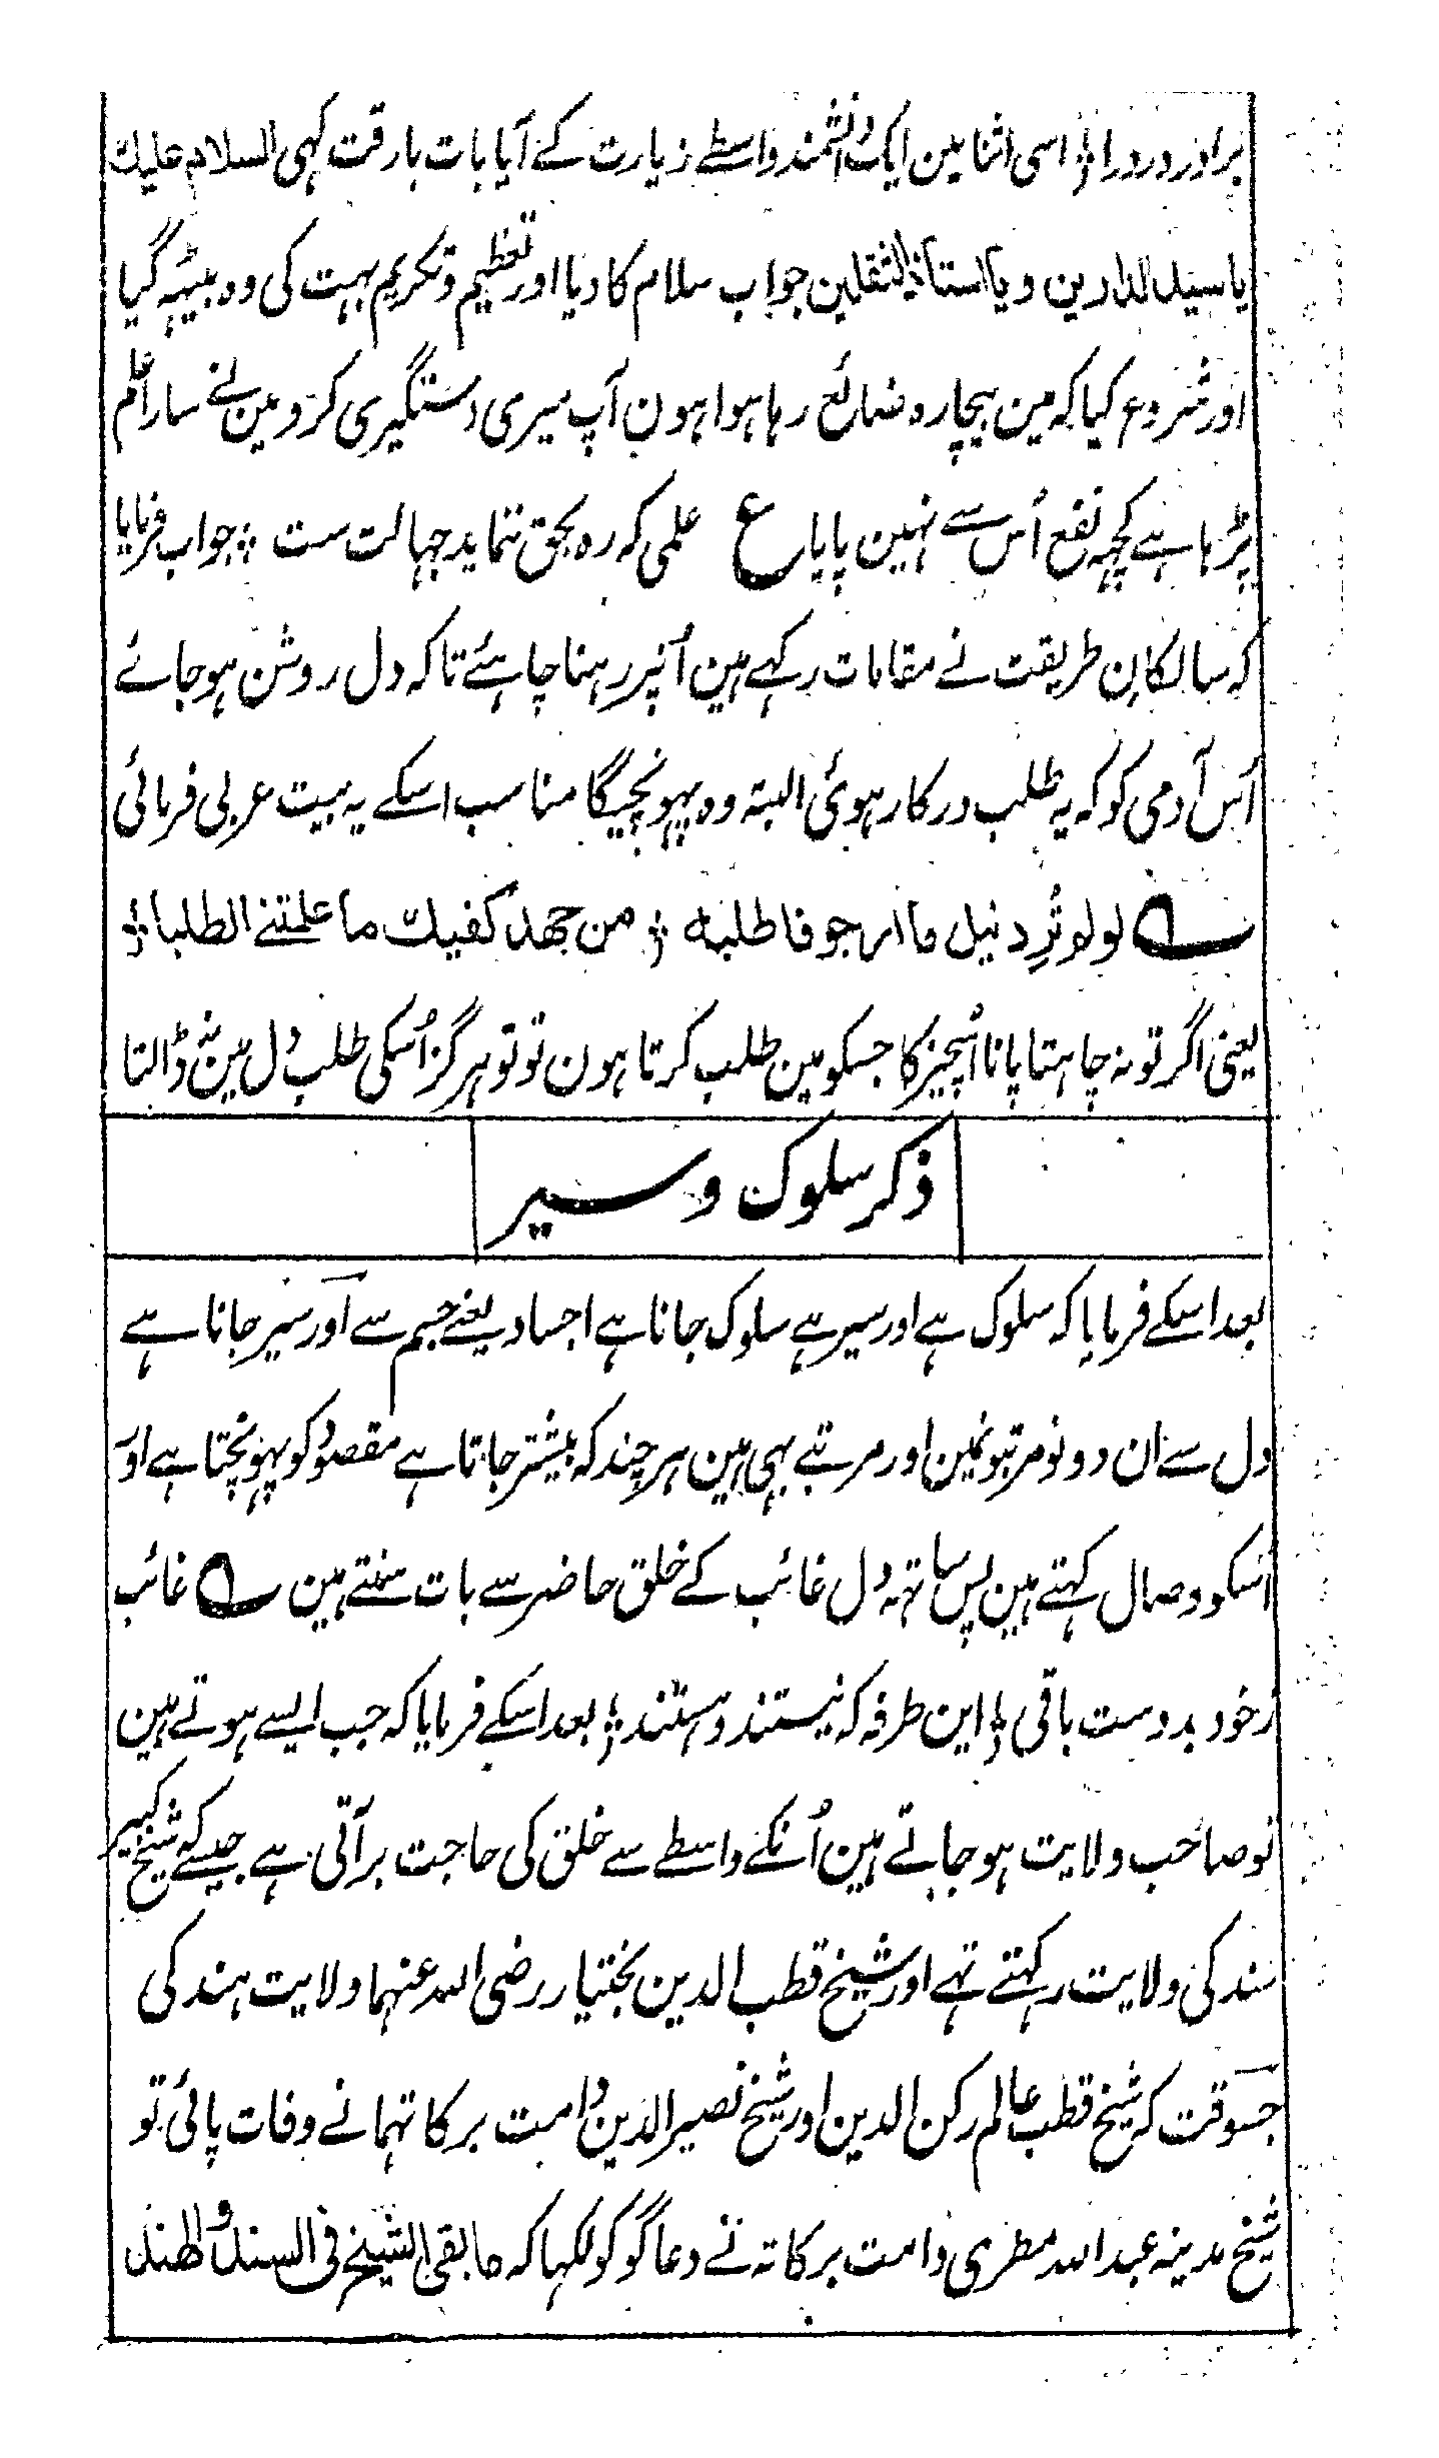 براور دردرا ؛ اسی اثنا مین ایک دانشمند واسطے زیارت کے آیا بات بارقت کہی السلام علیك
یا سید الدارین ویا استاذ الثقلین جواب سلام کا دیا اور تعظیم و تکریم بہت کی وہ بیٹہہ گیا
اور شروع کیا کہ مین بیچارہ ضائع رہا ہوا ہون آپ میری دستگیری کرو مین نے سارا علم
پڑہا ہے کچہہ نفع اُس سے نہین پایا ع علمی کہ رہ بحق ننماید جہالت ست ؛ جواب فرمایا
کہ سالکان طریقت نے مقامات رکہے ہین اُنپر رہنا چاہئے تاکہ دل روشن ہو جائے
اُس آدمی کو کہ یہ طلب درکار ہوئی البتہ وہ پہونچیگا مناسب اسکے یہ بیت عربی فرمائی
؎ لو لم تُرِد نیل ما ارجو فاطلبه ؛ من جهد كفیك ما علمتنی الطلبا ؛
یعنی اگر تو نہ چاہتا پانا اُسچیز کا جسکو مین طلب کرتا ہون تو تو ہرگز اُسکی طلب دل مین نہ ڈالتا
ذکر سلوک و سیر
بعد اسکے فرمایا کہ سلوک ہے اور سیر ہے سلوک جانا ہے اجساد یعنے جسم سے اور سیر جانا ہے
دل سے ان دونو مرتبونمین اور مرتبے بہی ہین ہر چند کہ بیشتر جاتا ہے مقصود کو پہونچتا ہے اور
اُسکو وصال کہتے ہین پس ساتہہ دل غائب کے خلق حاضر سے بات سنتے ہین ؎ غائب
زخود بدوست باقی ؛ این طرفہ کہ نیستند و ہستند ؛ بعد اسکے فرمایا کہ جب ایسے ہوتے ہین
تو صاحب ولایت ہو جاتے ہین اُنکے واسطے سے خلق کی حاجت بر آتی ہے جیسے کہ شیخ کبیر
سند کی ولایت رکہتے تہے اور شیخ قطب الدین بختیار رضی اللہ عنہما ولایت ہند کی
جسوقت کہ شیخ قطب عالم رکن الدین اور شیخ نصیر الدین دامت برکاتہما نے وفات پائی تو
شیخ مدینہ عبد اللہ مطری دامت برکاتہ نے دعاگو کو لکہا کہ ما بقی الشیخ فی السند و الهند